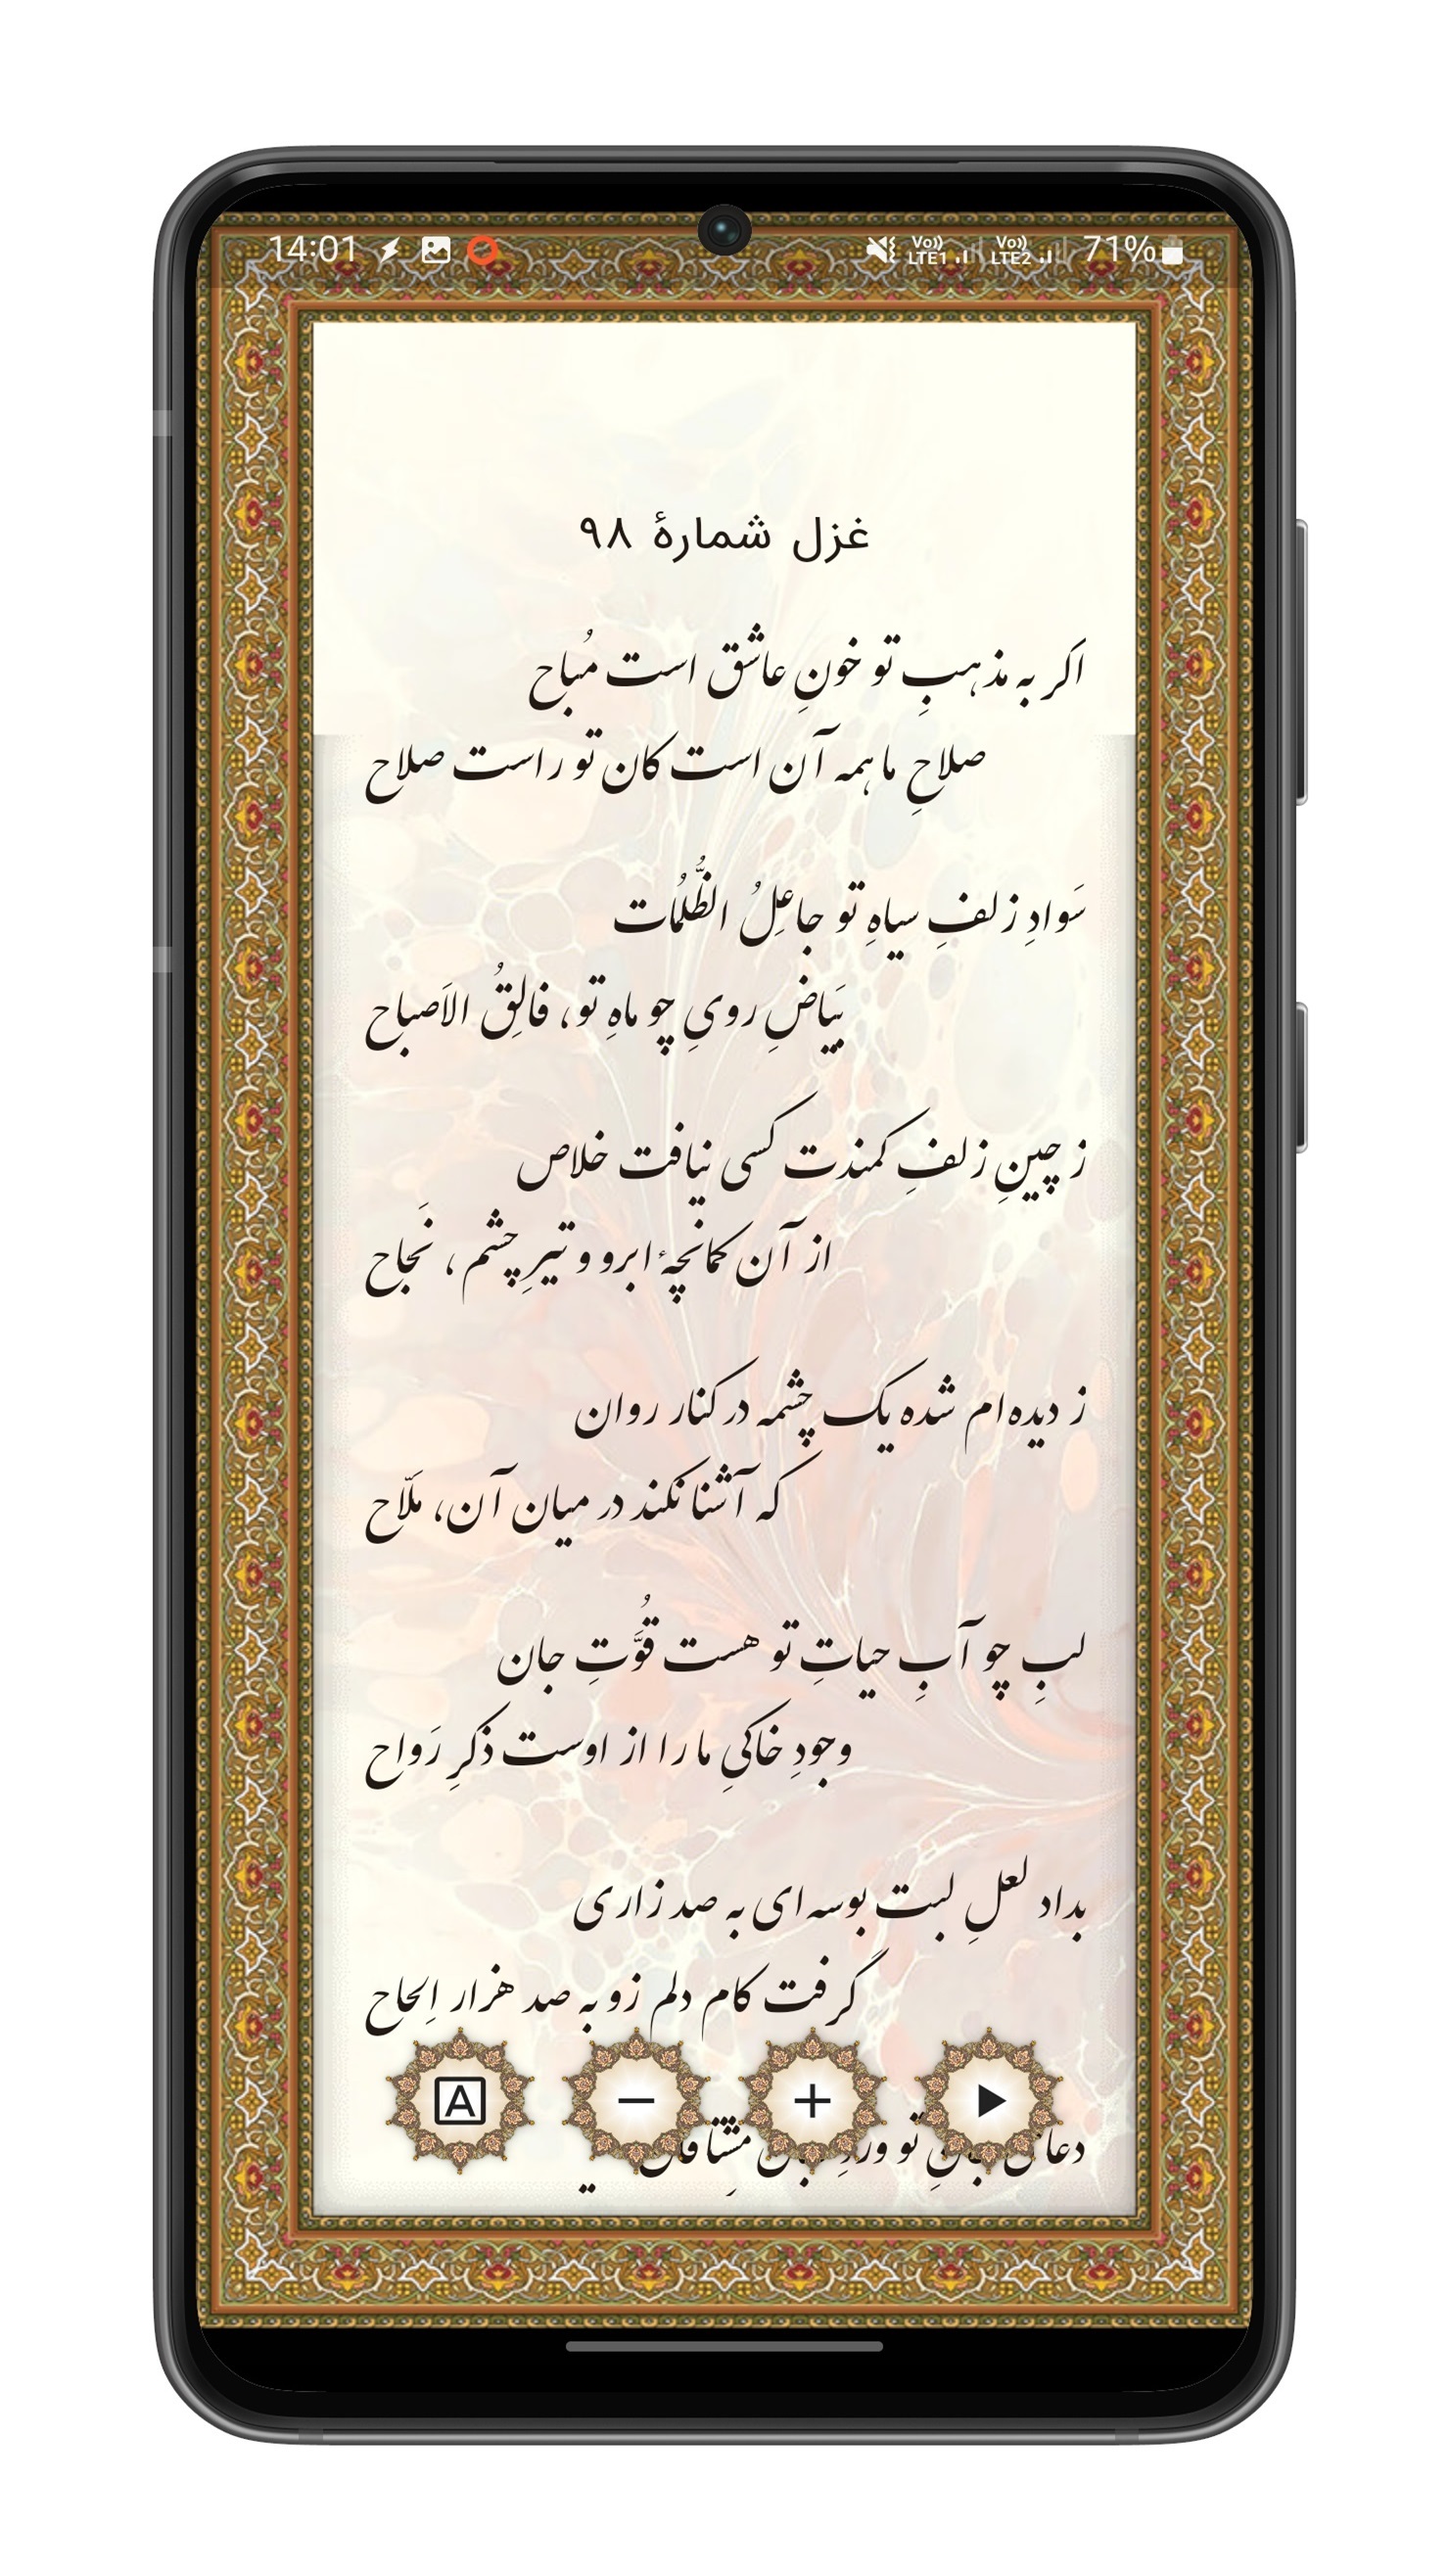 14:01 Vo)) LTE1 Vo)) LTE2 71%
غزل شمارهٔ ۹۸
اگر به مذهبِ تو خونِ عاشق است مُباح
صلاحِ ما همه آن است کان تو راست صلاح
سَوادِ زلفِ سیاهِ تو جاعِلُ الظُّلُمات
بَیاضِ رویِ چو ماهِ تو، فالِقُ الاَصباح
ز چینِ زلفِ کمندت کسی نیافت خلاص
از آن کمانچهٔ ابرو و تیرِ چشم، نَجاح
ز دیده‌ام شده یک چشمه در کنار روان
که آشنا نکند در میان آن، مَلّاح
لبِ چو آبِ حیاتِ تو هست قُوَّتِ جان
وجودِ خاکیِ ما را از اوست ذکرِ رَواح
بداد لعلِ لبت بوسه‌ای به صد زاری
گرفت کام دلم زو به صد هزار اِلحاح
A − +
تو وردِ